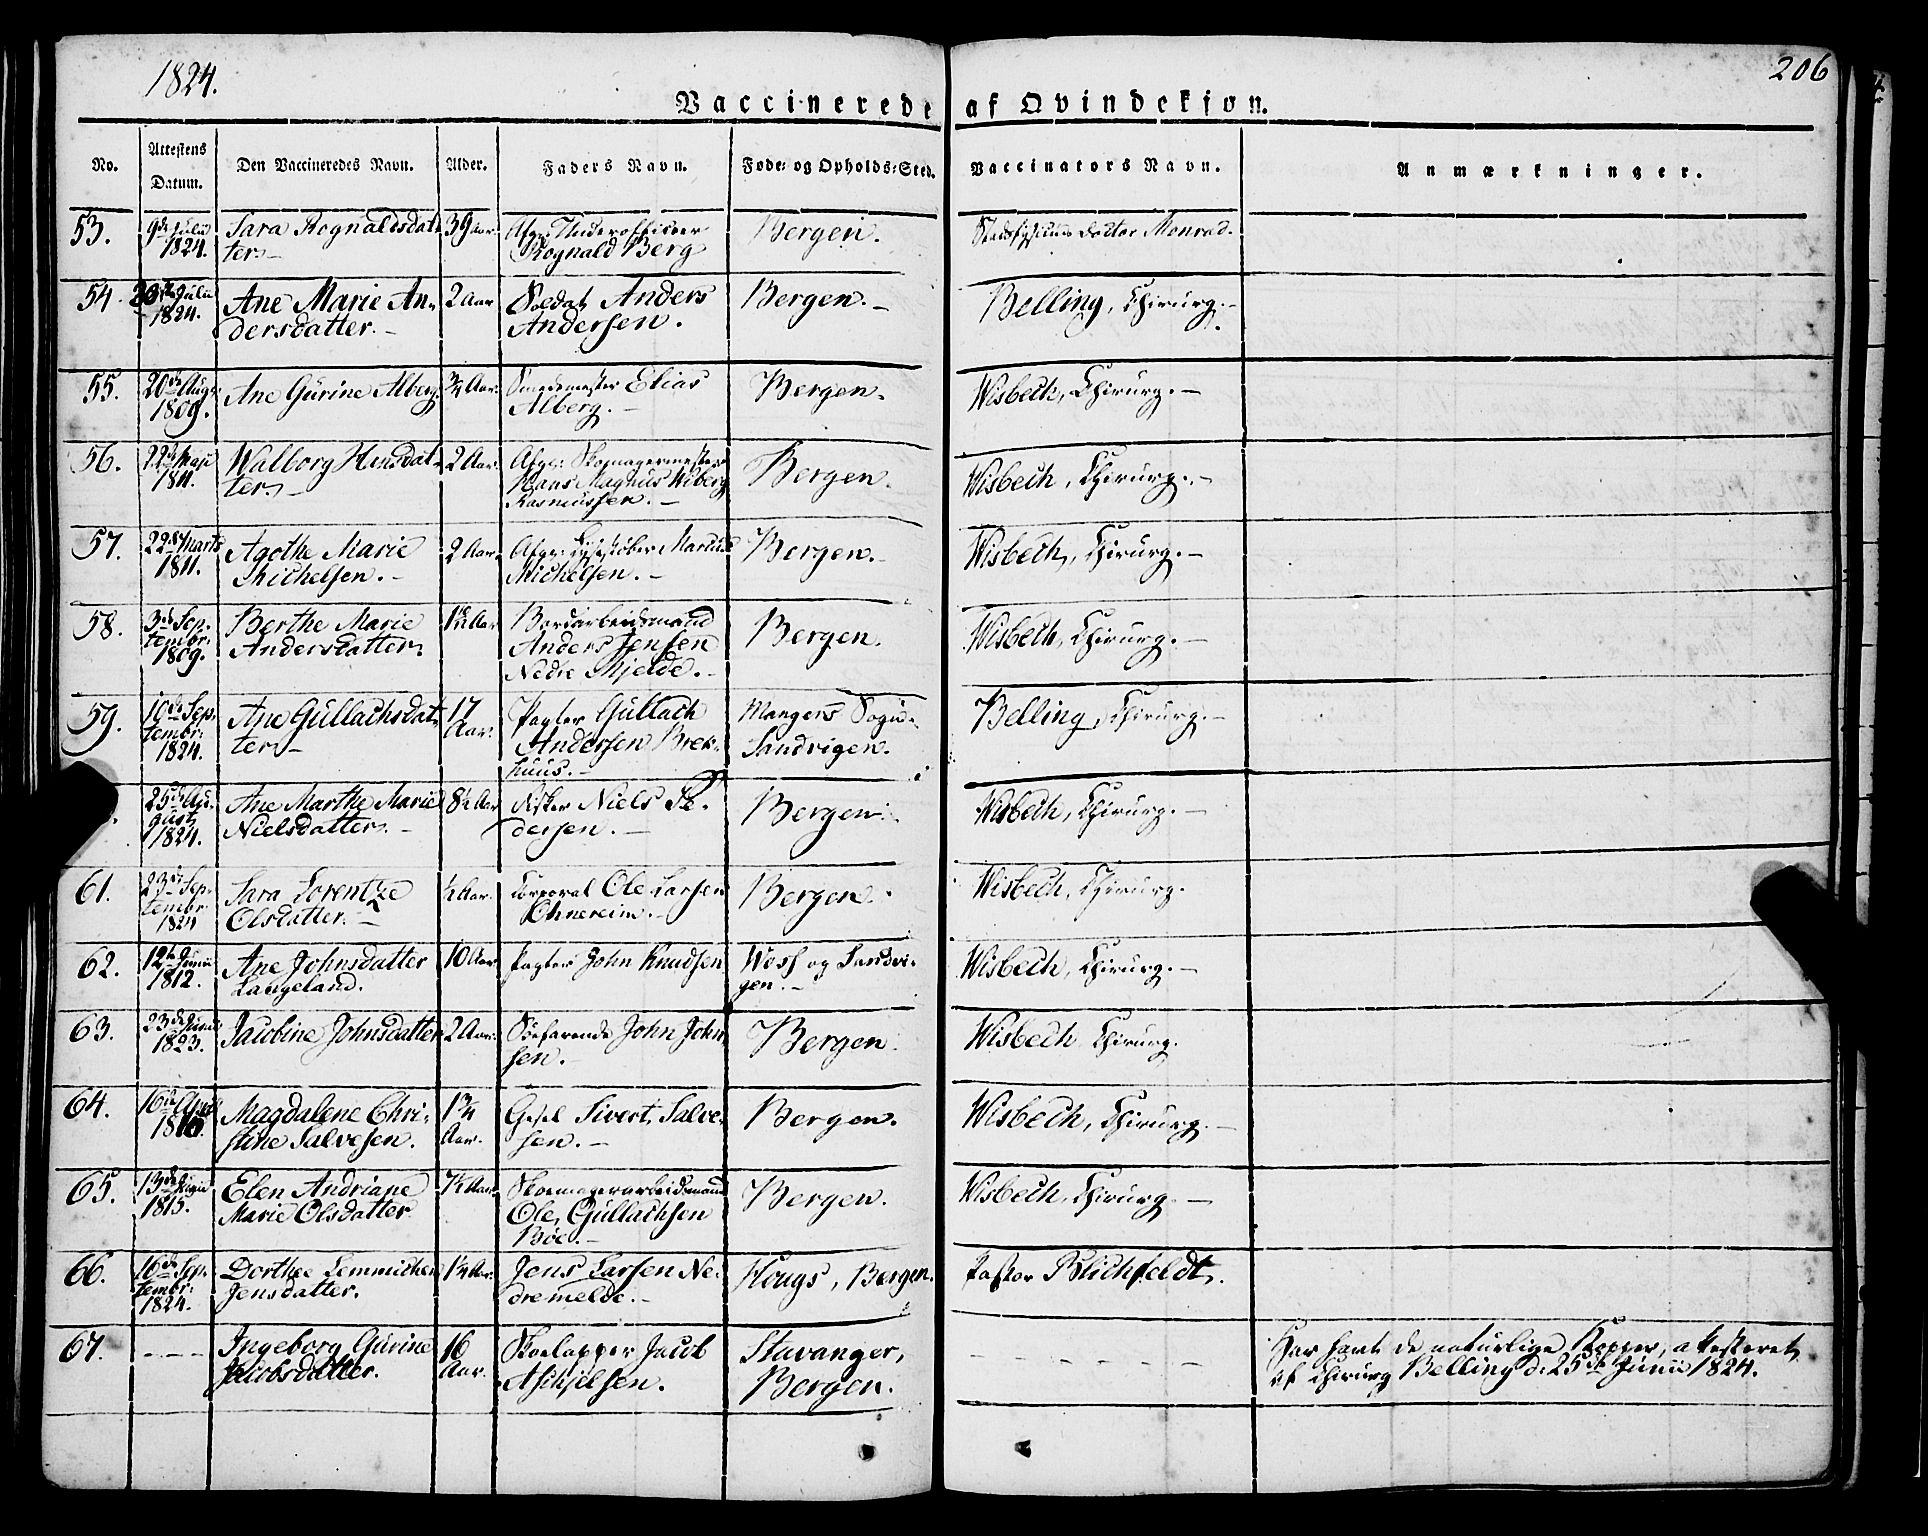 1824.
206
Vaccinerede af Qvindekjøn.
No. Attestens Datum. Den Vaccineredes Navn. Alder. Faders Navn. Føde- og Opholds-Sted. Vaccinators Navn. Anmærkninger.
53. 9de Julii 1824. Sara Rognaldsdatter.- Afg. Underofficeer Rognald Berg Bergen. Doctor Monrad.
54. Julii 1824. Ane Marie Andersdatter.- 2 Aar Soldat Anders Andersen. Bergen.- Belling, Chirurg.-
55. 20de Aug. 1809. Ane Gurine Alberg. 3/4 Aar. Smedemester Elias Alberg.- Bergen. Wisbech, Chirurg.-
56. 22de Maji 1811. Walborg Hansdatter.- 2 Aar. Afg: Skomagermester Hans Magnus Wiberg Rasmussen.- Bergen. Wisbech, Chirurg.-
57. 22de Marts 1811. Agothe Marie Michelsen.- 2 Aar. Afg: Lysestøber Marcus Michelsen.- Bergen.- Wisbech, Chirurg.-
58. 3de Septembr. 1809. Berthe Marie Andersdatter. 1½ Aar Bordarbeidsmand Anders Jensen Nedre Mjelde.- Bergen. Wisbech, Chirurg.-
59. 10de Septembr: 1824. Ane Gullachsdatter.- 17 Aar. Pagter Gullach Andersen Brekhuus.- Mangers Sogn- Sandvigen. Belling, Chirurg.-
25de August 1824. Ane Marthe Marie Nielsdatter.- 8½ Aar Fisker Niels Pedersen.- Bergen. Wisbech, Chirurg.-
61. 23de Septembr 1824 Sara Lorentze Olsdatter.- ½ Aar. Corporal Ole Larsen Bergen. Wisbech, Chirurg.
62. 12te Junii 1812. Ane Johnsdatter Langeland. 10 Aar Pagter John Knudsen Woss og Sandvigen.- Wisbech, Chirurg.-
63. 23de Junii 1823. Jacobine Johnsdatter 2 Aar. Søefarende John Johnsen.- Bergen. Wisbech, Chirurg.
64. 16de April Magdalene Christine Salvesen. 1¾ Aar. Gesel Sivert Salvesen.- Bergen. Wisbech, Chirurg.-
65. 13de 1815. Elen Andriane Marie Olsdatter 7½ Aar. Skomagerarbeidsmand Ole Gullachsen Böe.- Bergen. Wisbech, Chirurg.-
66. 16de Septembr: 1824. Dorthee Lemmichen Jensdatter. 1¼ Aar. Jens Larsen Nedremelde.- Hougs, Bergen. Pastor Blichfeldt.
67. --- Ingeborg Gurine Jacobsdatter. 16 Aar. Skoelapper Jacob Aschjelsen. Stavanger, Bergen. ------ Har havt de naturlige Kopper, attesteret af Chirurg Belling d: 25de Junii 1824.